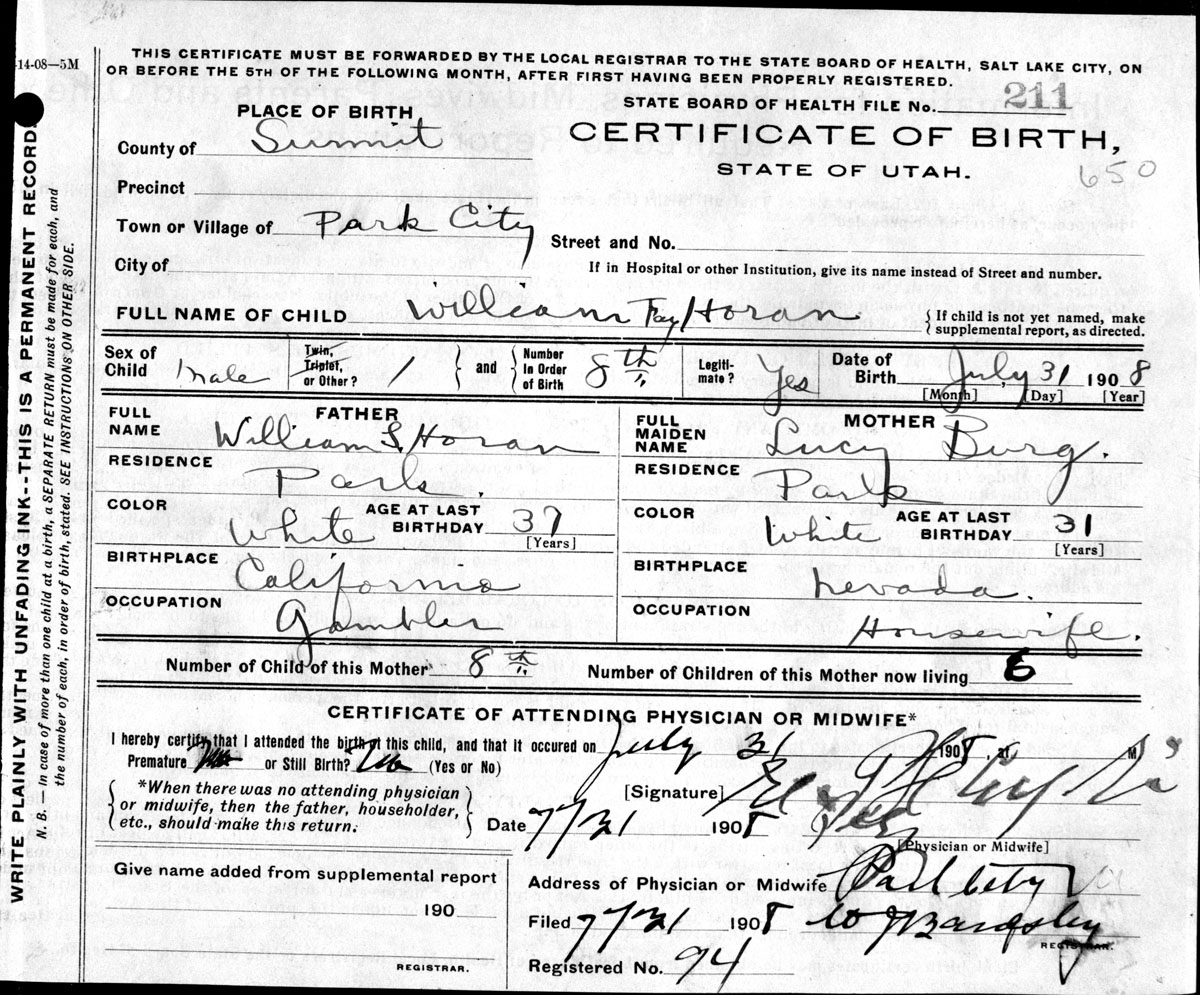 -14-08—5M
THIS CERTIFICATE MUST BE FORWARDED BY THE LOCAL REGISTRAR TO THE STATE BOARD OF HEALTH, SALT LAKE CITY, ON
OR BEFORE THE 5TH OF THE FOLLOWING MONTH, AFTER FIRST HAVING BEEN PROPERLY REGISTERED.
STATE BOARD OF HEALTH FILE No. 211
PLACE OF BIRTH
CERTIFICATE OF BIRTH,
STATE OF UTAH.
650
County of Summit
Precinct
Town or Village of Park City
Street and No.
City of
If in Hospital or other Institution, give its name instead of Street and number.
FULL NAME OF CHILD William Fay Horan
{ If child is not yet named, make
supplemental report, as directed.
Sex of Child male
Twin, Triplet, or Other? 1
{ and }
Number in Order of Birth 8th
Legiti-mate? Yes
Date of Birth July 31 1908
[Month] [Day] [Year]
FATHER
FULL NAME William S. Horan
RESIDENCE Park.
COLOR White
AGE AT LAST BIRTHDAY 37
[Years]
BIRTHPLACE California
OCCUPATION Gambler
MOTHER
FULL MAIDEN NAME Lucy Burg.
RESIDENCE Park
COLOR White
AGE AT LAST BIRTHDAY 31
[Years]
BIRTHPLACE Nevada.
OCCUPATION Housewife.
Number of Child of this Mother 8th
Number of Children of this Mother now living 6
CERTIFICATE OF ATTENDING PHYSICIAN OR MIDWIFE*
I hereby certify that I attended the birth of this child, and that it occured on July 31 1908, at M
Premature No or Still Birth? No (Yes or No)
*When there was no attending physician
or midwife, then the father, householder,
etc., should make this return.
[Signature]
Date 7/31 1908
[Physician or Midwife]
Give name added from supplemental report
190
REGISTRAR.
Address of Physician or Midwife Park City
Filed 7/31 1908 Bardsley
REGISTRAR.
Registered No. 94
WRITE PLAINLY WITH UNFADING INK--THIS IS A PERMANENT RECORD
N. B.—In case of more than one child at a birth, a SEPARATE RETURN must be made for each, and
the number of each, in order of birth, stated. SEE INSTRUCTIONS ON OTHER SIDE.